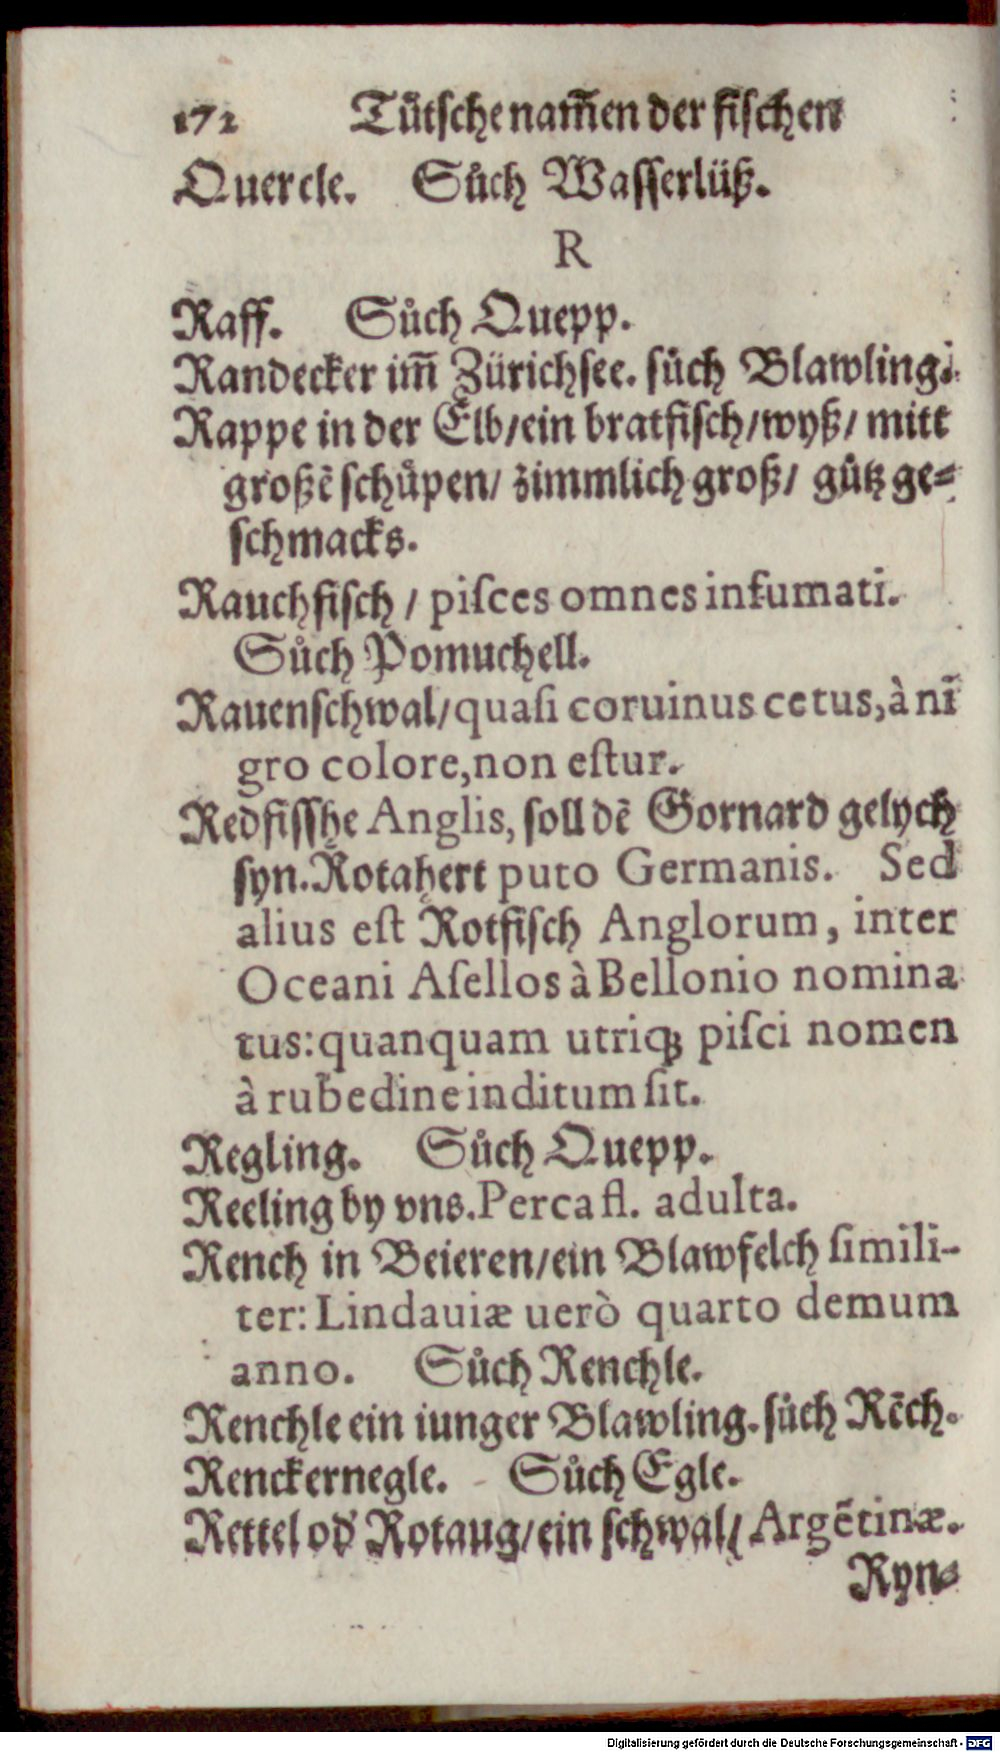 172 Tütsche nam̃en der fischen
Quercle. Sůch Wasserlüß.
R
Raff. Sůch Quepp.
Randecker im̃ Zürichsee. sůch Blawling.
Rappe in der Elb/ein bratfisch/wyß/ mitt
großẽ schůpen/ zimmlich groß/ gůtz ge⸗
schmacks.
Rauchfisch / piſces omnes infumati.
Sůch Pomuchell.
Rauenschwal/quaſi coruinus cetus, à nĩ
gro colore, non eſtur.
Redfisshe Anglis, soll dẽ Gornard gelych
syn. Rotahert puto Germanis. Sed
alius eſt Rotfisch Anglorum, inter
Oceani Aſellos à Bellonio nomina
tus: quanquam utriq; piſci nomen
à rubedine inditum ſit.
Regling. Sůch Quepp.
Reeling by vns. Perca fl. adulta.
Rench in Beieren/ein Blawfelch ſimili-
ter: Lindauiæ uerò quarto demum
anno. Sůch Renchle.
Renchle ein iunger Blawling. sůch Rẽch.
Renckernegle. Sůch Egle.
Rettel od̕ Rotaug/ein schwal/ Argẽtinæ.
Ryn⸗
Digitalisierung gefördert durch die Deutsche Forschungsgemeinschaft - DFG